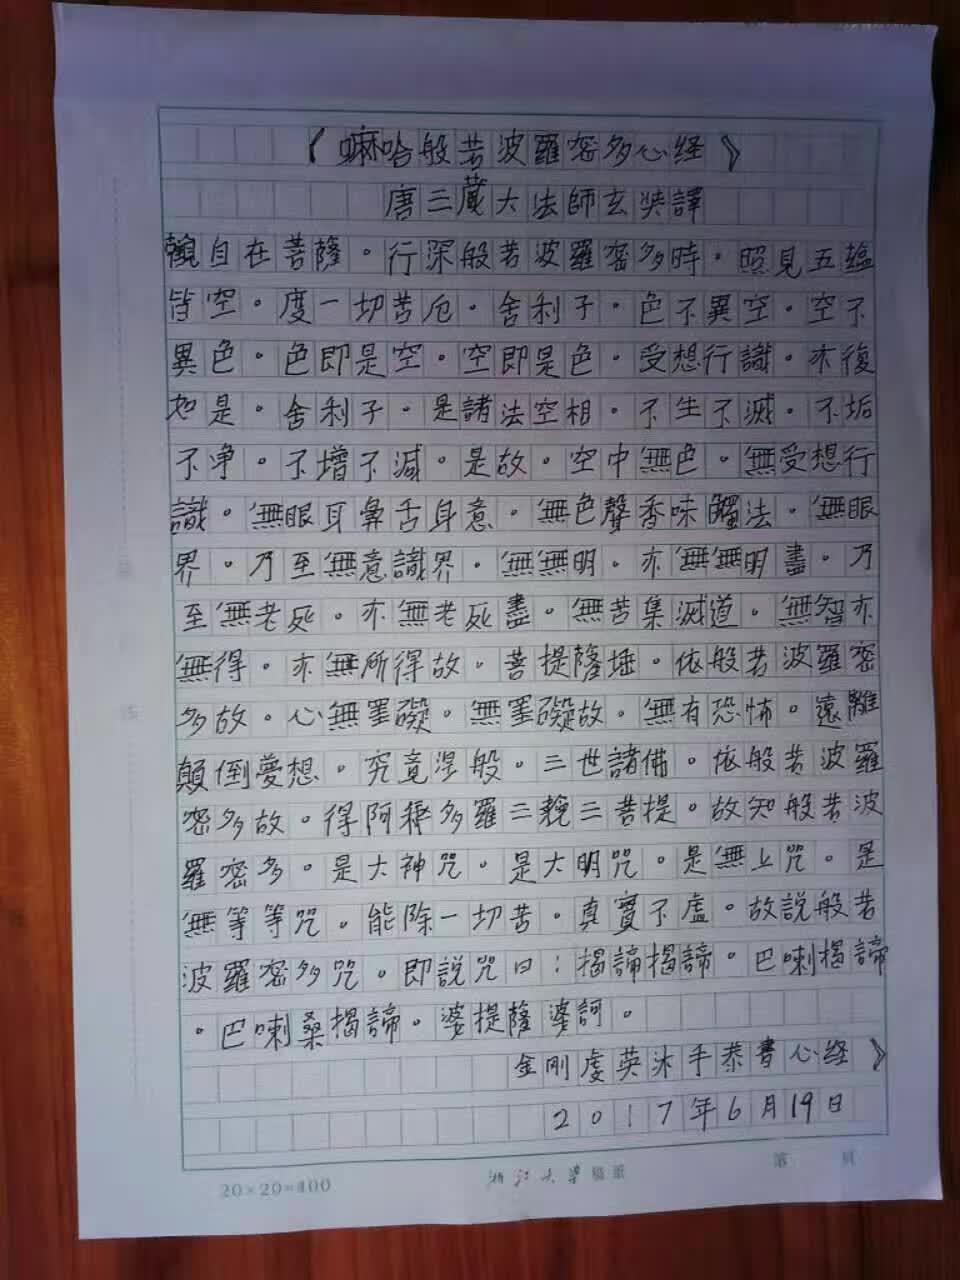 《嘛哈般若波羅密多心経》
唐三藏大法師玄奘譯
觀自在菩薩。行深般若波羅密多時。照見五蘊
皆空。度一切苦厄。舍利子。色不異空。空不
異色。色即是空。空即是色。受想行識。亦復
如是。舍利子。是諸法空相。不生不滅。不垢
不净。不增不減。是故。空中無色。無受想行
識。無眼耳鼻舌身意。無色聲香味觸法。無眼
界。乃至無意識界。無無明。亦無無明盡。乃
至無老死。亦無老死盡。無苦集滅道。無智亦
無得。亦無所得故。菩提薩埵。依般若波羅密
多故。心無罣礙。無罣礙故。無有恐怖。遠離
顛倒夢想。究竟涅般。三世諸佛。依般若波羅
密多故。得阿耨多羅三藐三菩提。故知般若波
羅密多。是大神咒。是大明咒。是無上咒。是
無等等咒。能除一切苦。真實不虛。故説般若
波羅密多咒。即説咒曰：揭諦揭諦。巴喇揭諦
。巴喇桑揭諦。婆提薩婆訶。
金剛虔英沐手恭書心経》
2017年6月19日
20×20=400 浙江大學稿紙 第 頁